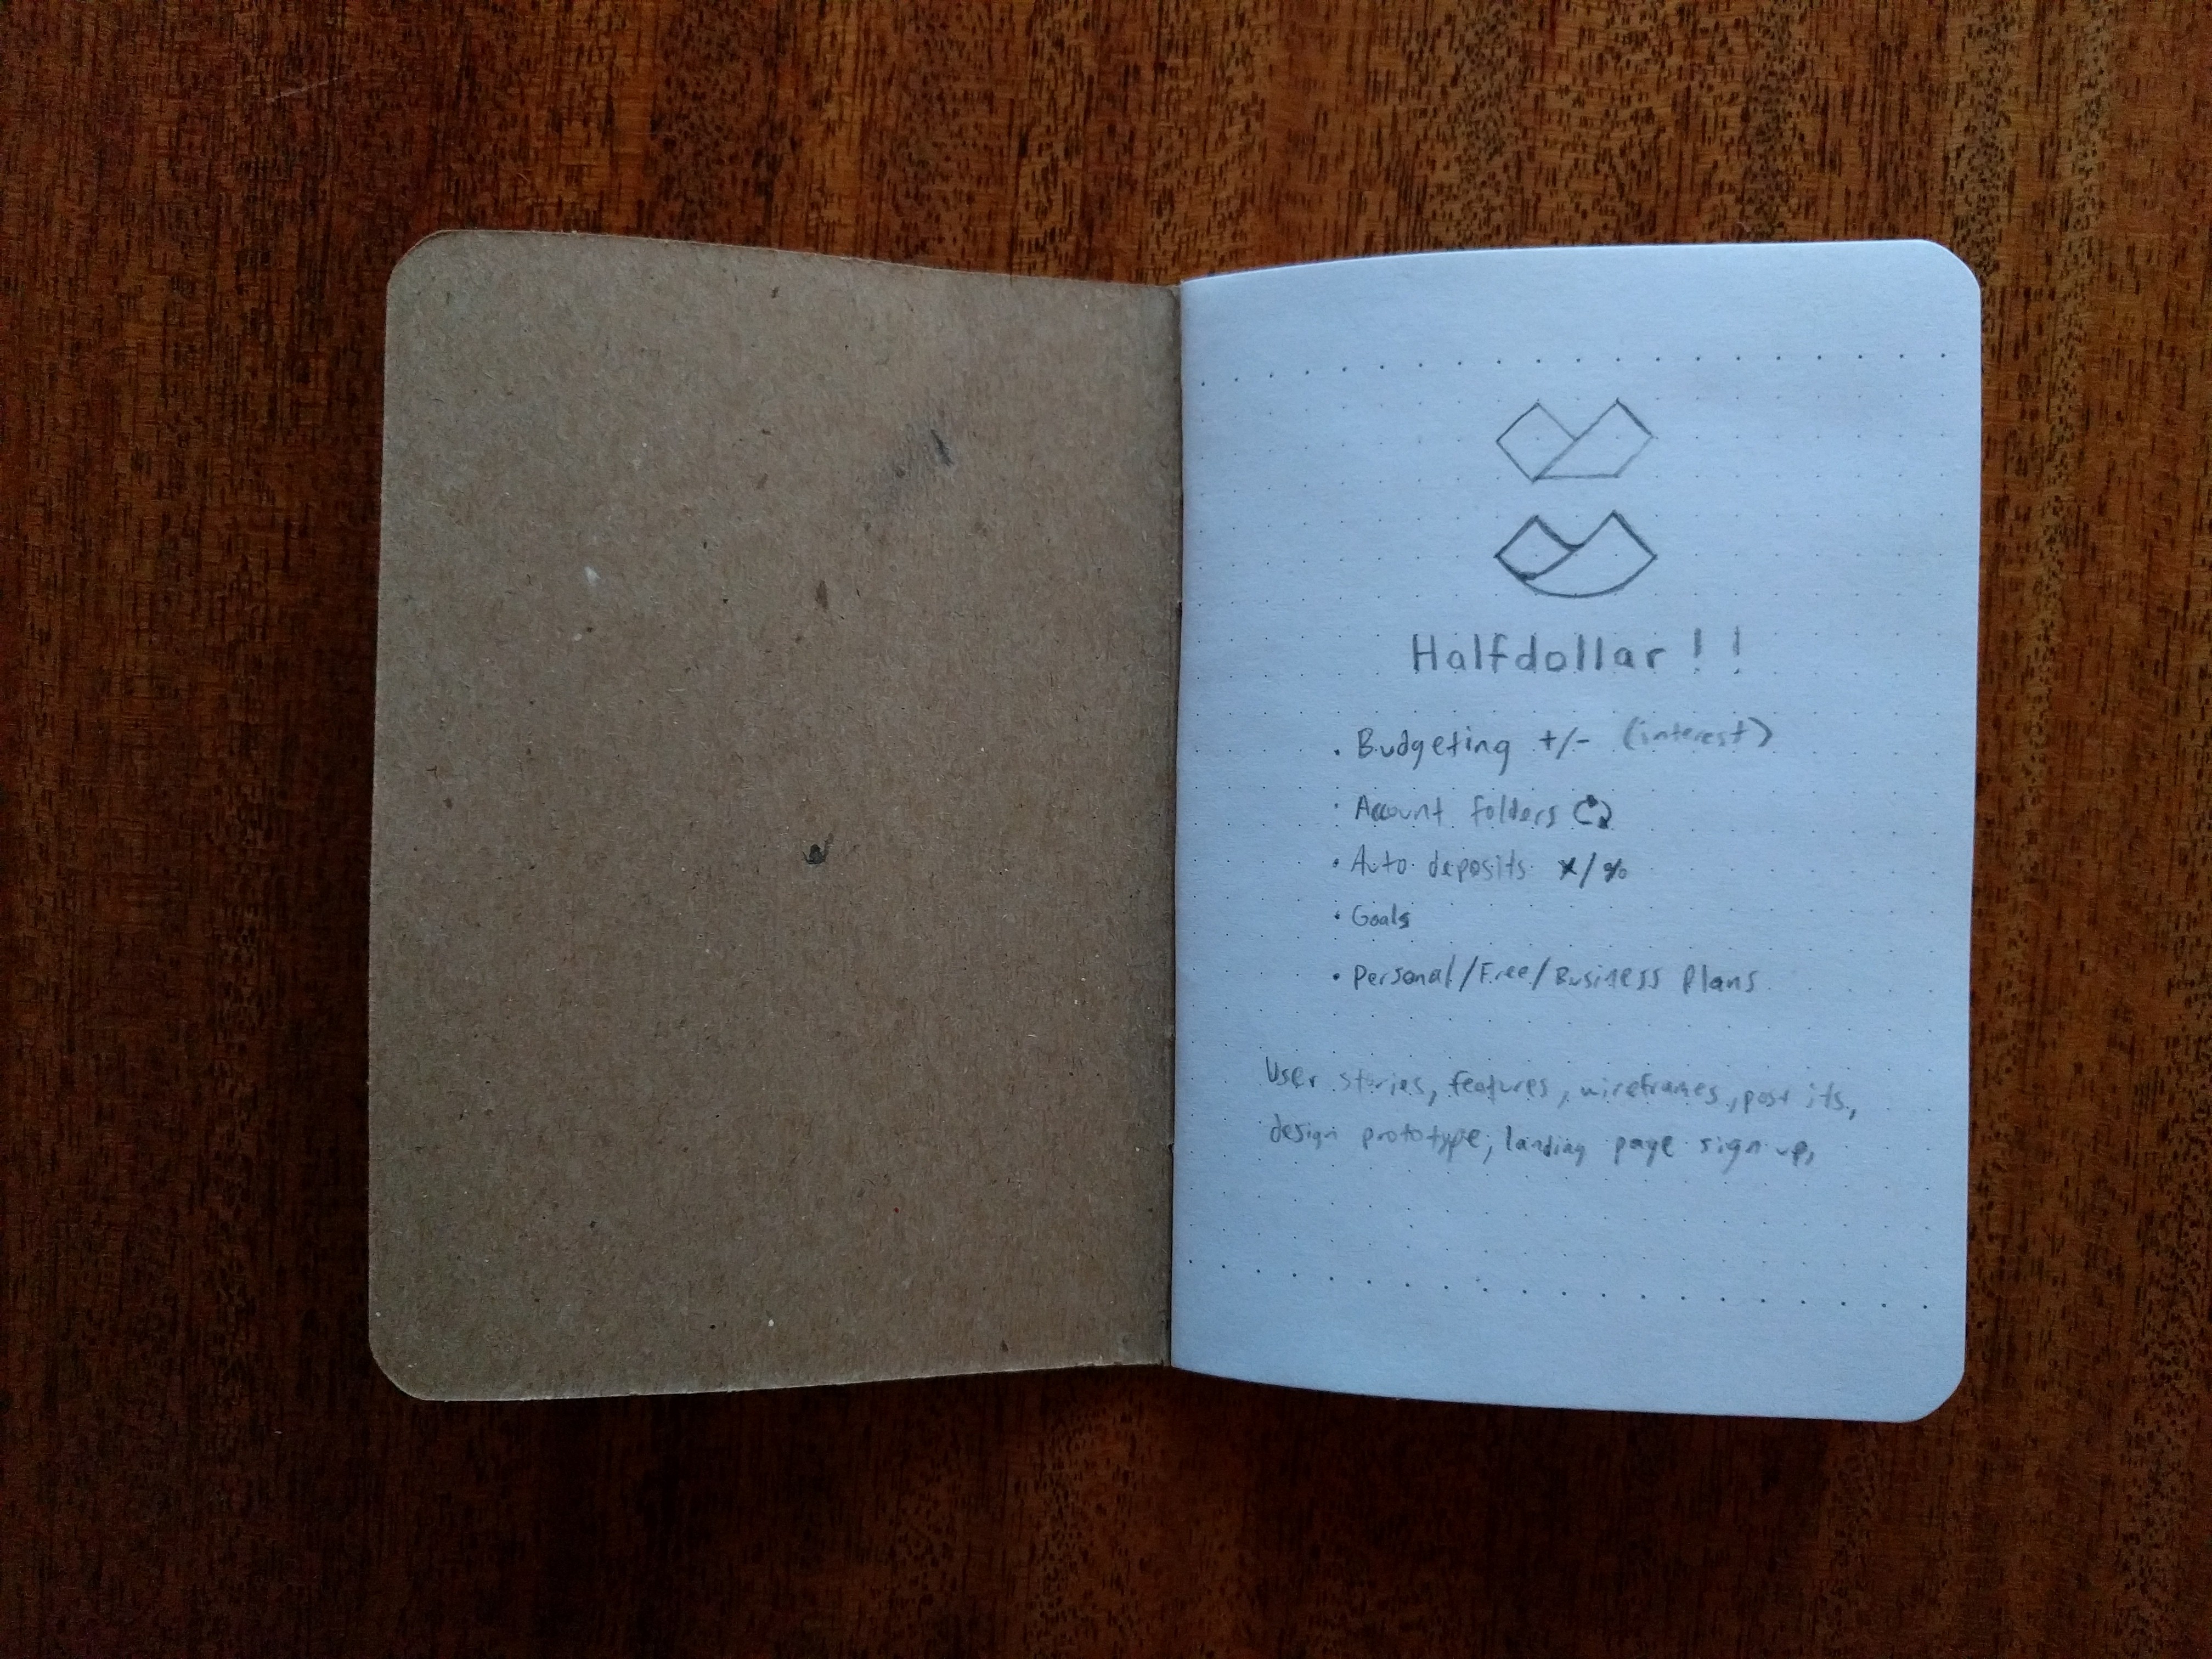 Halfdollar!!
• Budgeting +/- (interest)
• Account folders
• Auto deposits x/%
• Goals
• Personal/Free/Business Plans
User stories, features, wireframes, post its,
design prototype, landing page sign up,